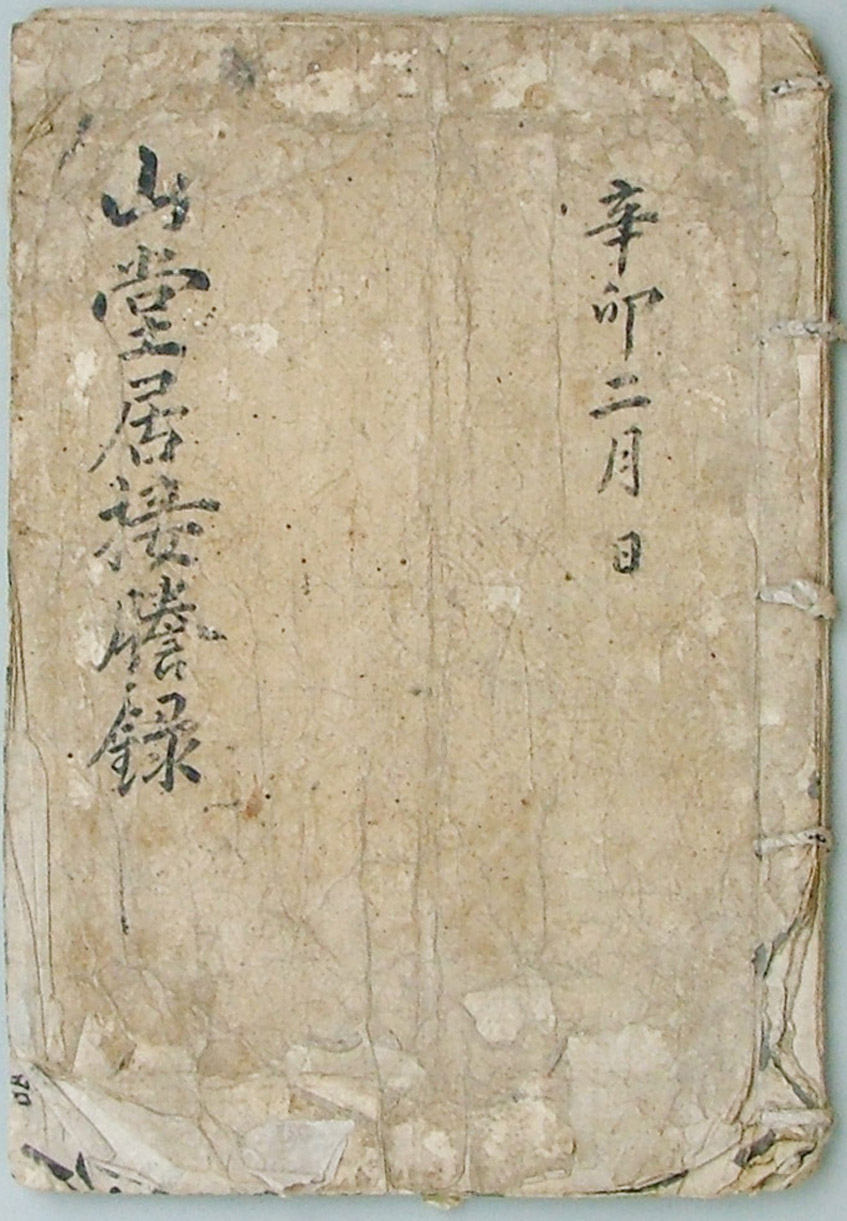 辛卯二月 日
山堂居接謄錄